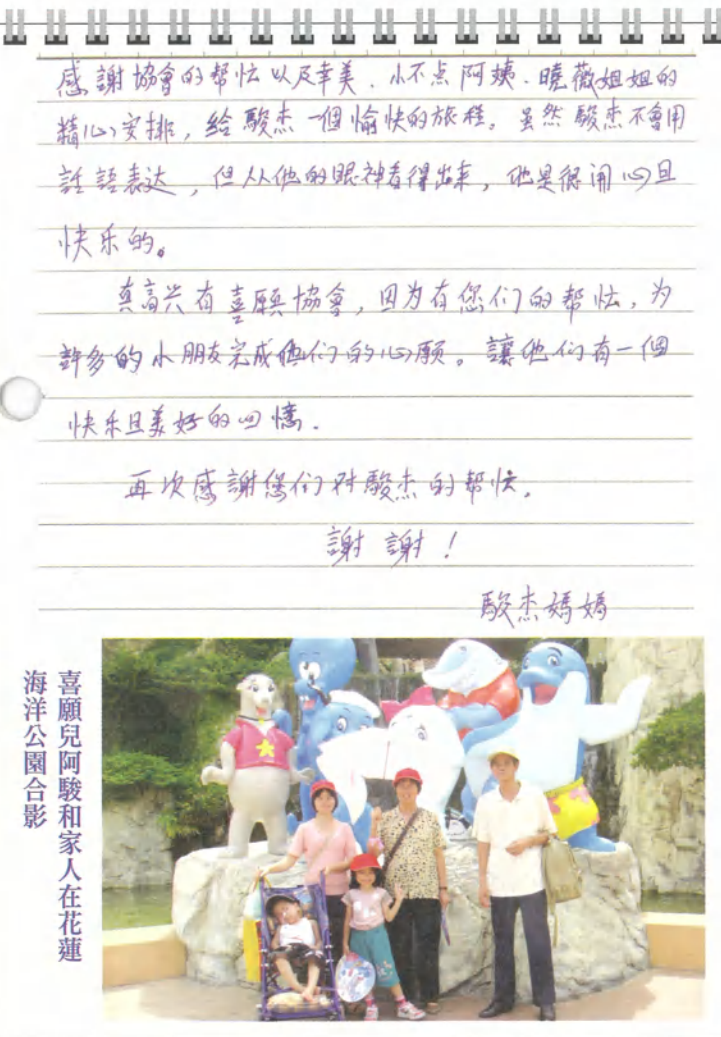 感謝協會的帮忙以及幸美、小不点阿姨、曉薇姐姐的
精心安排，給駿杰一個愉快的旅程。虽然駿杰不會用
話語表达，但从他的眼神看得出来，他是很開心且
快乐的。
真高兴有喜願協會，因为有您们的帮忙，为
許多的小朋友完成他们的心願。讓他们有一個
快乐且美好的回憶．
再次感謝您们对駿杰的帮忙．
謝謝！
駿杰媽媽
喜願兒阿駿和家人在花蓮
海洋公園合影